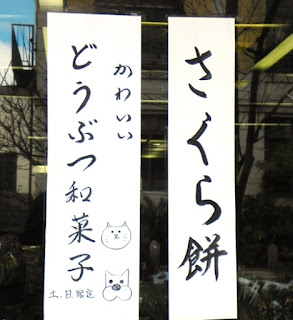 さくら餅
かわいい
どうぶつ和菓子
土、日限定